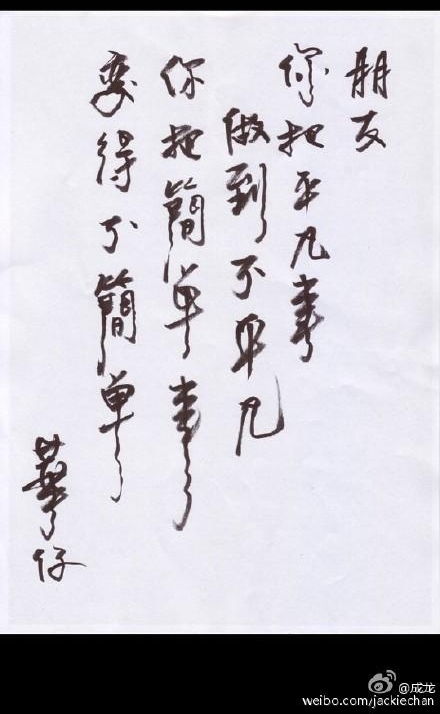 朋友
你把平凡事
做到不平凡
你把簡單事
變得不簡單
華仔
@成龙
weibo.com/jackiechan